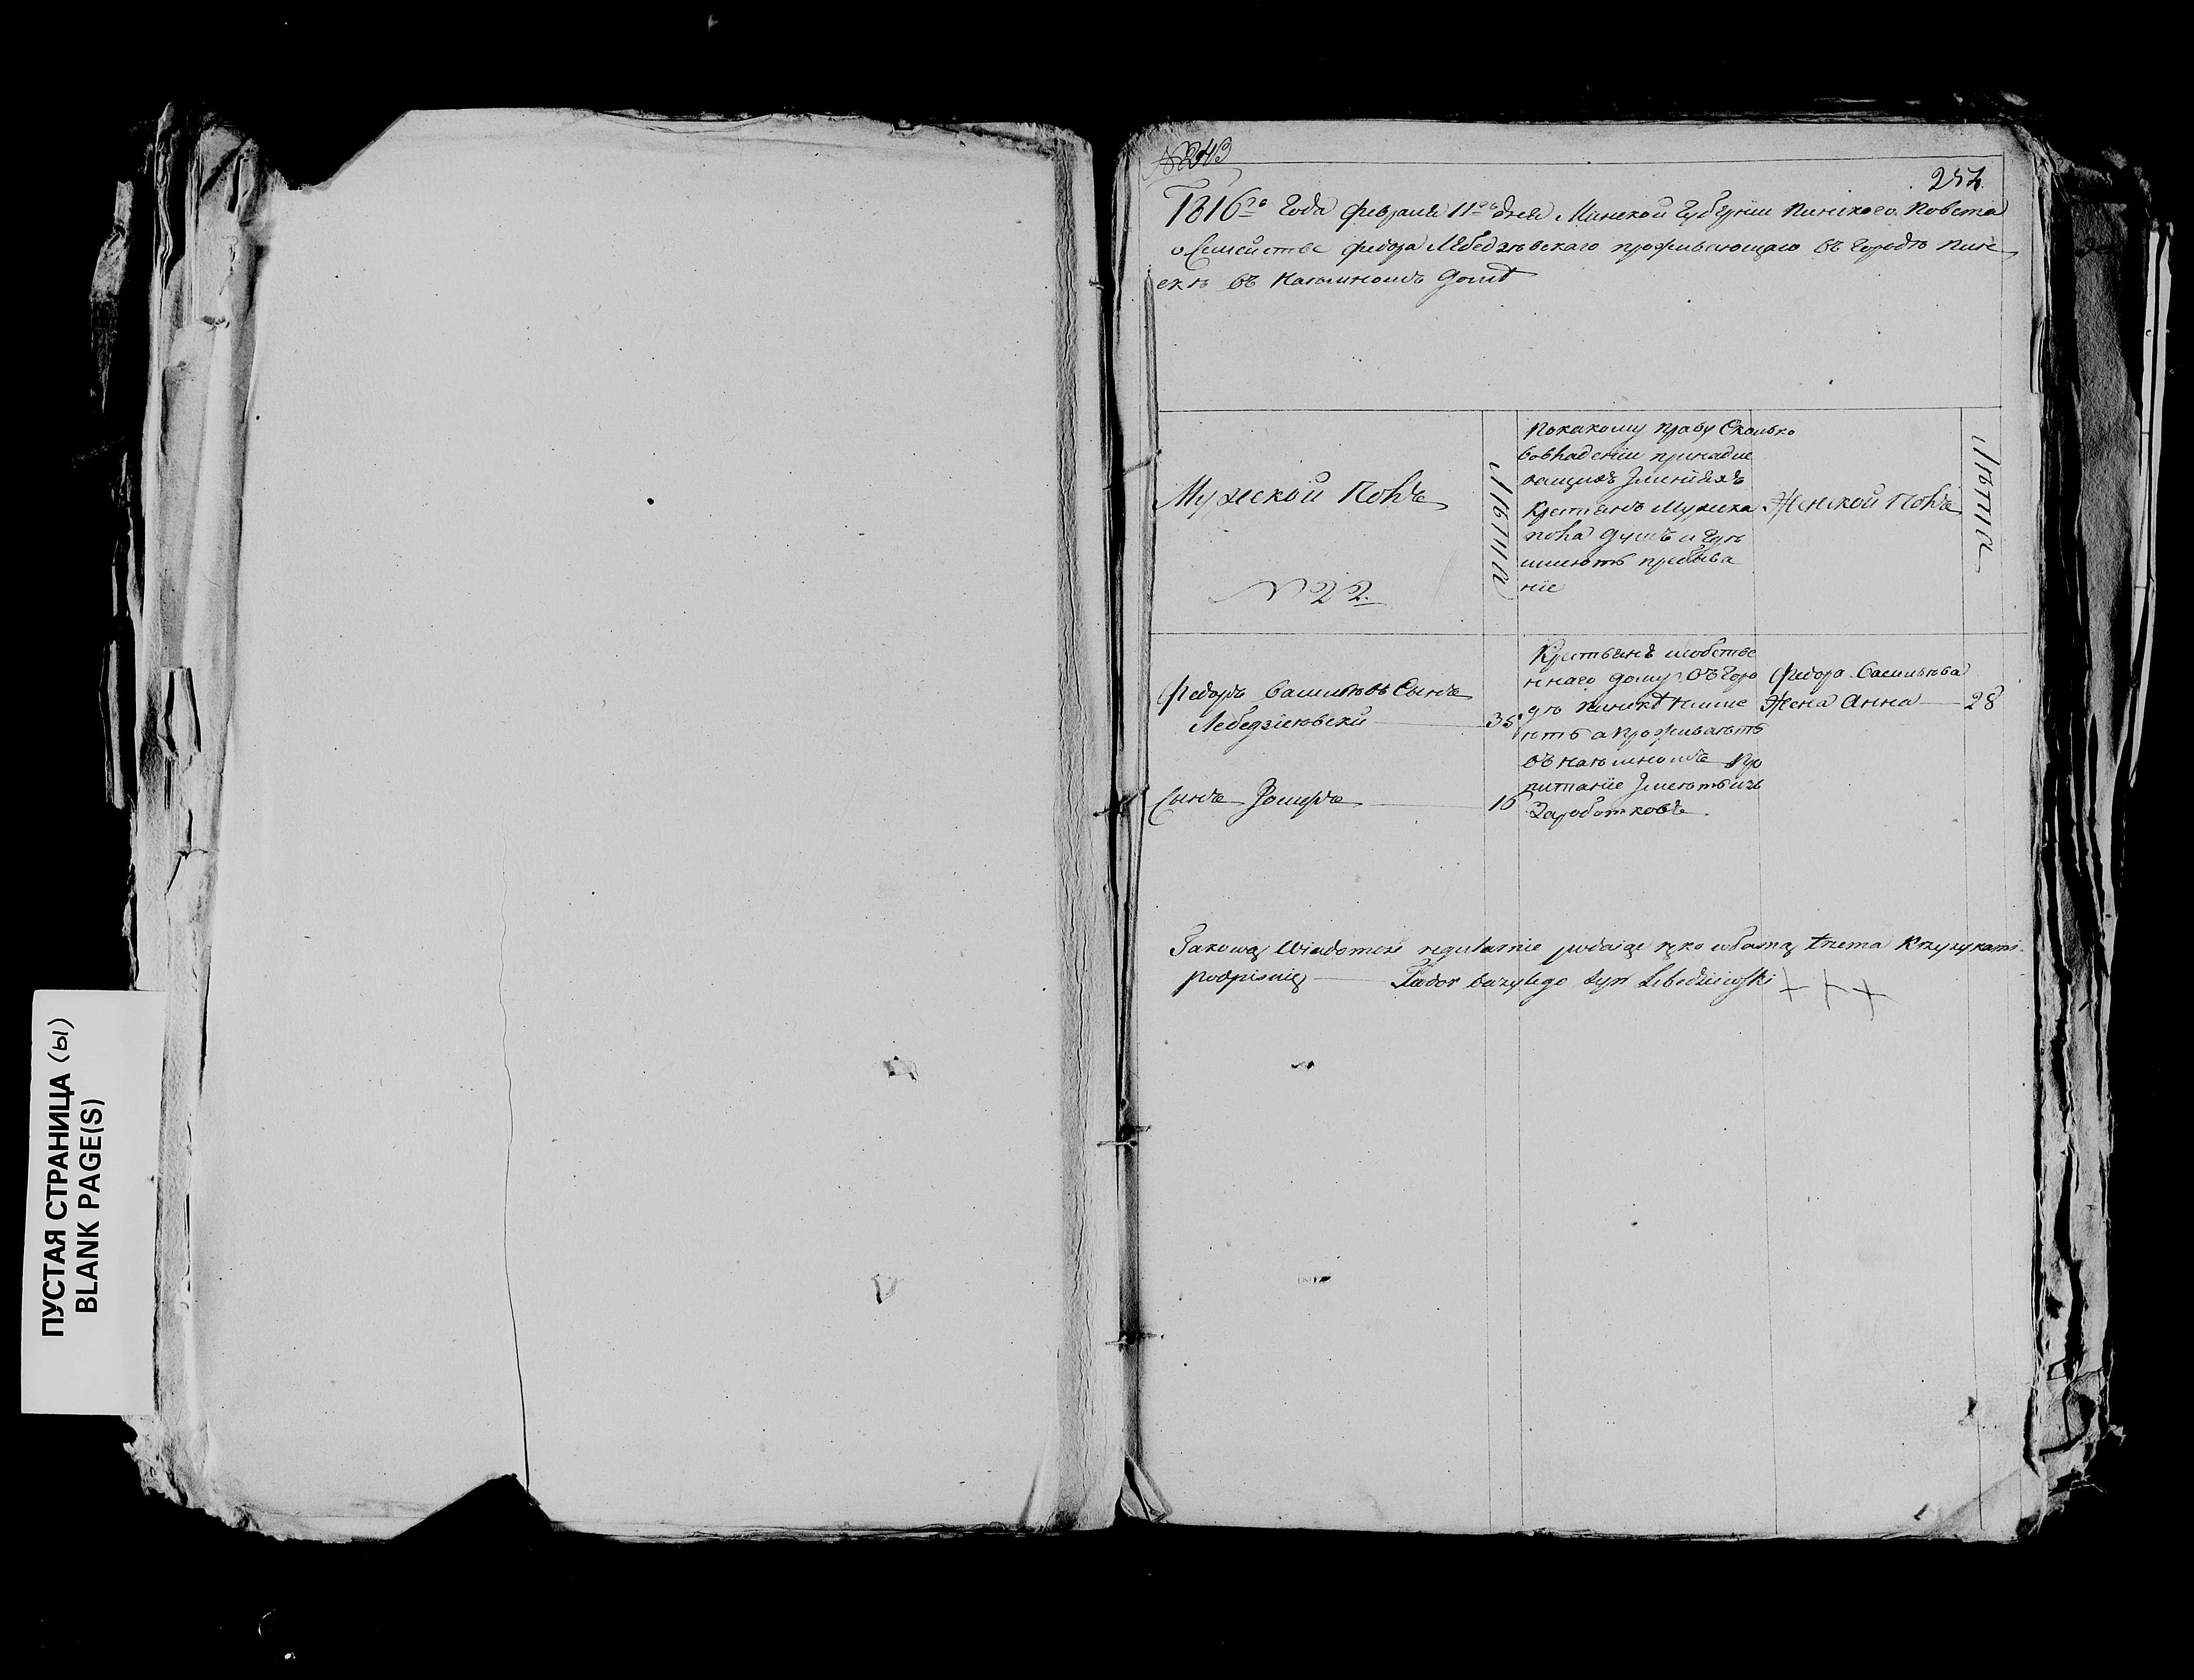 ПУСТАЯ СТРАНИЦА (ы)
BLANK PAGE(S)
№ 243
257.
1816го Года февраля 11го дня Минской Губернии Пинского Повета
о Семействе федора Лебедзевского проживающаго въ городѣ Пин
скѣ въ Наемномъ домѣ
Мужской Полъ
№ 22.
Лѣта
По какому праву Сколько
во владении принадле
жащихъ Имѣнияхъ
Крестьянъ Мужска
пола душъ и Где
имеютъ пребыва
ние
Женской Полъ
Лѣта
Федоръ Василевъ Сынъ
Лебедзіевски 35
Сынъ 16
Крестьянъ и собстве
ннаго дому въ Горо
дѣ Пинскѣ неиме
ютъ а проживаютъ
въ наемномъ Про
питание Имеютъ изъ
Заработковъ
Федора Василева
Жена Анна 28
Takową Wiadomość regularnie podaię ręką własną trzema Krzyzykami
podpisuię Fiador bazylego syn Lebedziewski + + +